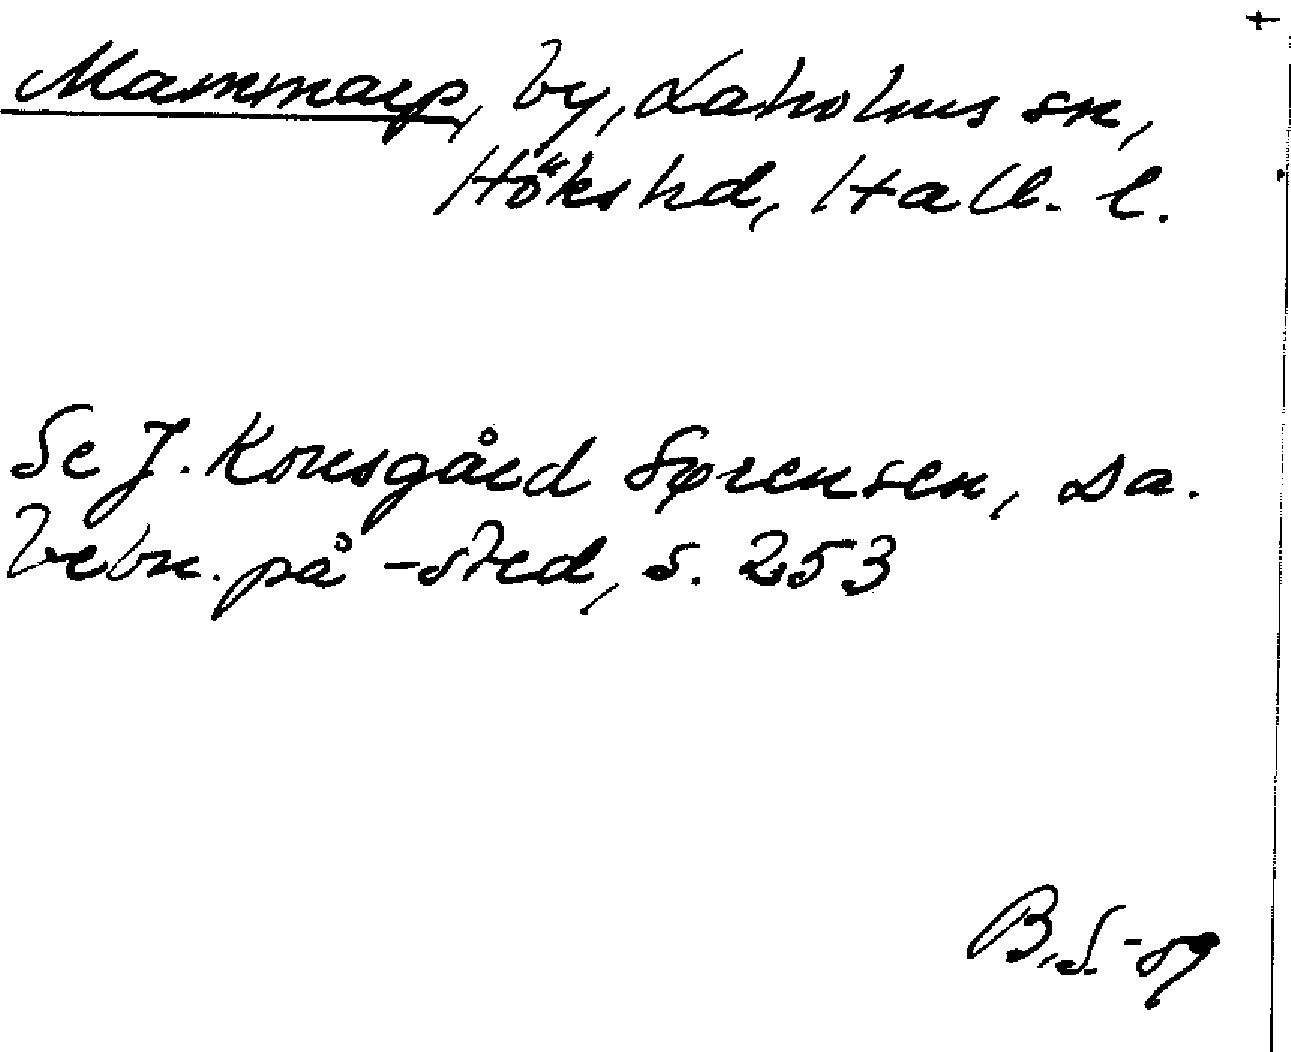 Mammarp, by, Laholms sn,
Höks hd, Hall. l.
Se J. Kousgård Sørensen, Da.
bebn. på -sted, s. 253
B.S. -59